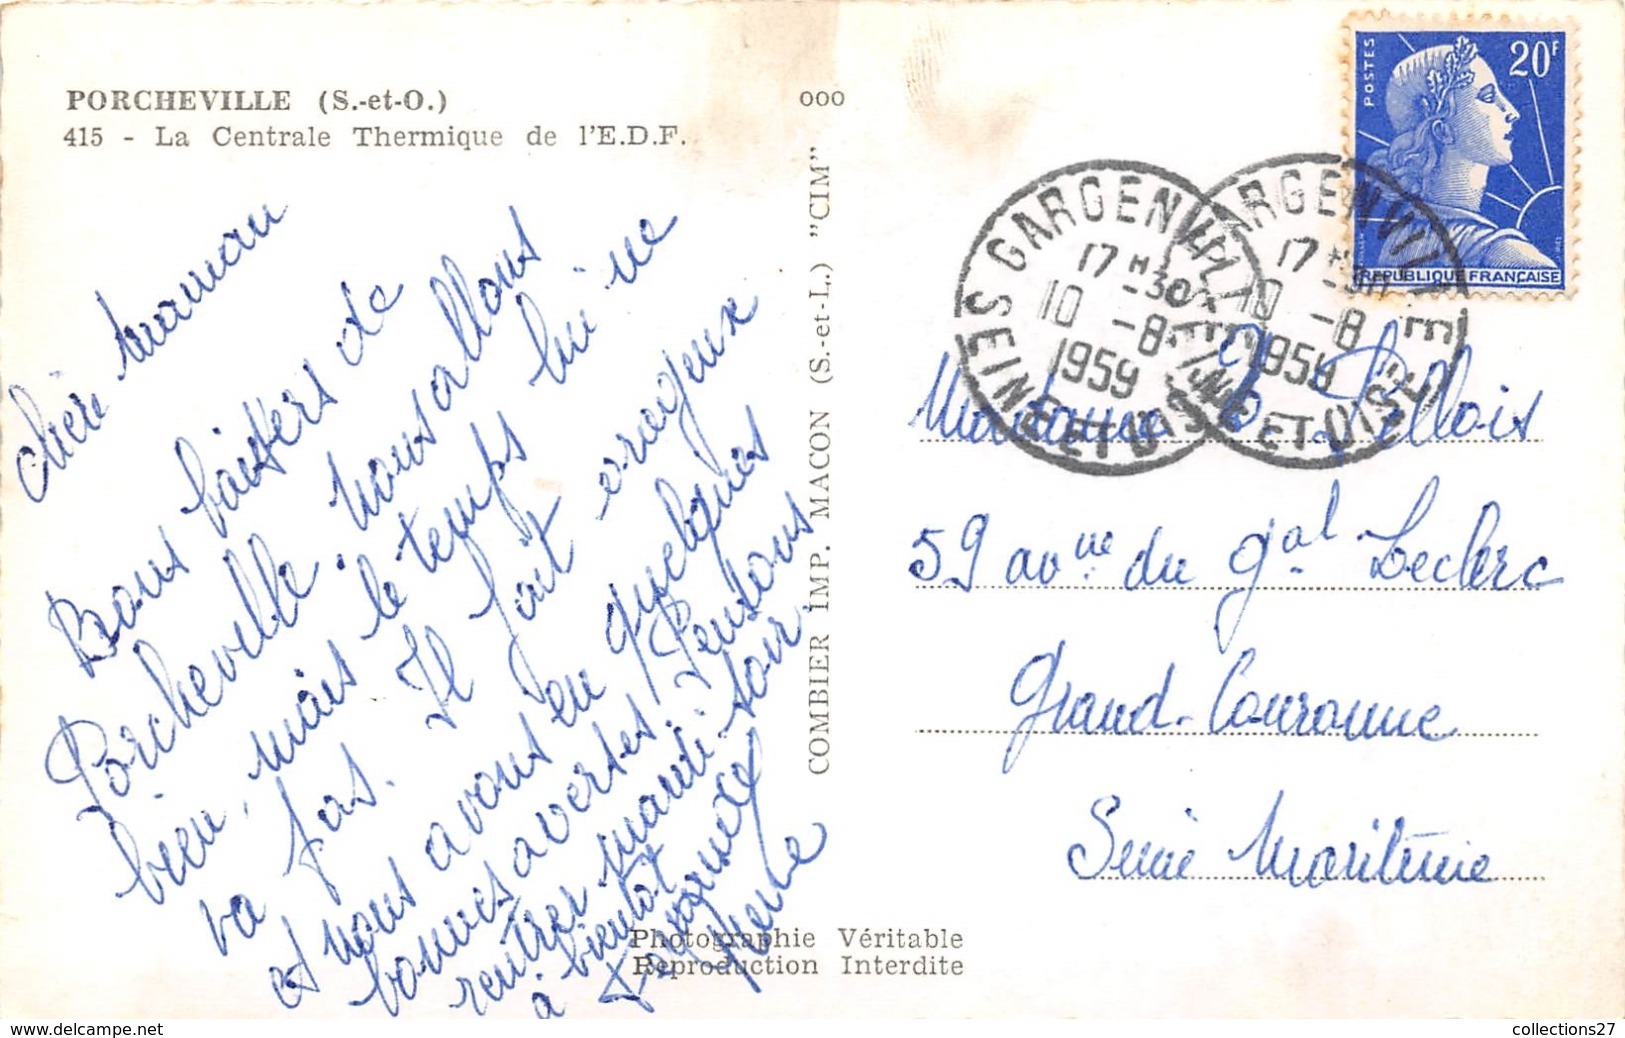 PORCHEVILLE (S.-et-O.)
415 - La Centrale Thermique de l'E.D.F.
000
chère maman
Bons baisers de
Porcheville. Nous allons
bien, mais le temps lui ne
va pas. Il fait orageux
et nous avons eu quelques
bonnes averses. Pensons
rentrer mardi soir.
à bientôt
Pierre
COMBIER IMP. MACON (S.-et-L.) "CIM"
Photographie Véritable
Reproduction Interdite
POSTES
20F
REPUBLIQUE FRANÇAISE
GARGENVILLE
17 H30
10 -8
1959
SEINE ET OISE
GARGENVILLE
17 H30
10 -8
1959
SEINE ET OISE
Madame
59 avnue du gal Leclerc
Grand-Couronne
Seine Maritime
collections27